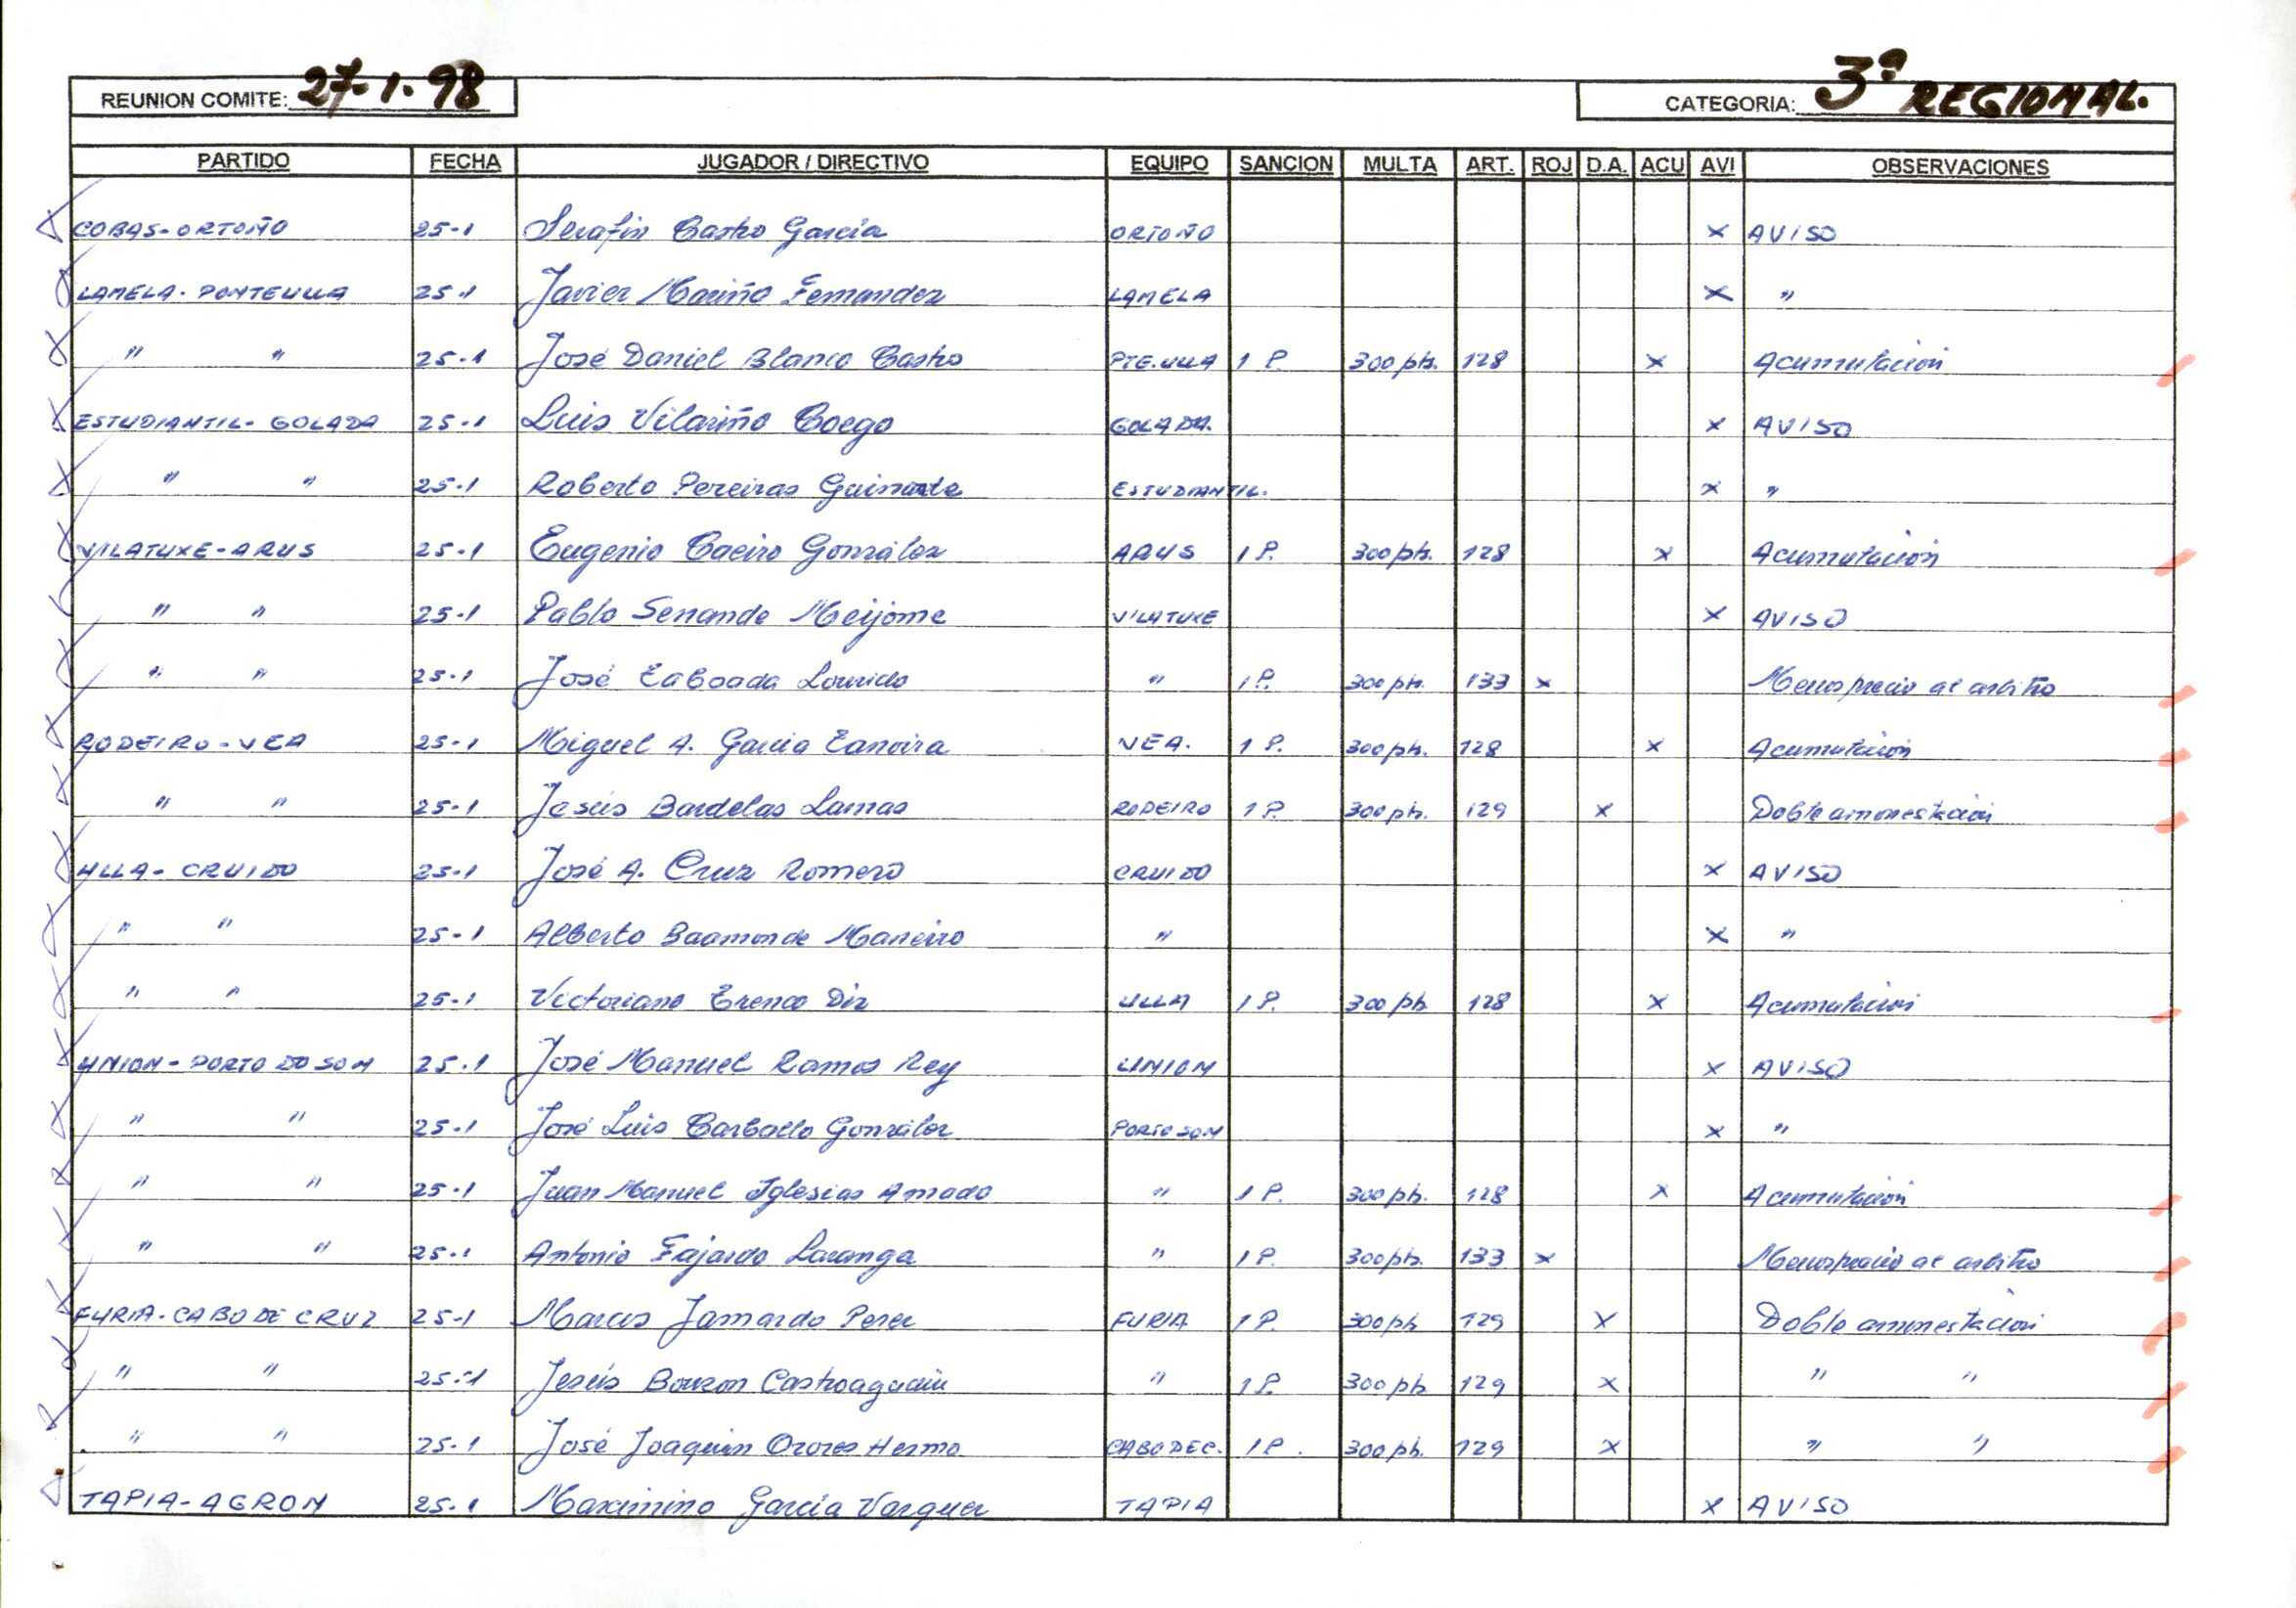 REUNION COMITE: 27-1-98
CATEGORIA: 3ª REGIONAL.
PARTIDO FECHA JUGADOR / DIRECTIVO EQUIPO SANCION MULTA ART. ROJ D.A. ACU AVI OBSERVACIONES
COBAS-ORTOÑO 25-1 Serafin Castro García ORTOÑO x AVISO
LAMELA-PONTEULLA 25-1 Javier Mariño Fernandez LAMELA x "
" " 25-1 José Daniel Blanco Castro PTE.ULLA 1 P. 300 pts. 128 x Acumulación
ESTUDIANTIL-GOLADA 25-1 Luis Vilariño Coego GOLADA. x AVISO
" " 25-1 Roberto Pereiras ESTUDIANTIL. x "
VILATUXE-ARUS 25-1 Eugenio Caeiro González ARUS 1 P. 300 pts. 128 x Acumulación
" " 25-1 Pablo Senande Meijome VILATUXE x AVISO
" " 25-1 José Taboada Lourido " 1 P. 300 pts. 133 x Menosprecio al arbitro
RODEIRO-VEA 25-1 Miguel A. Garcia VEA. 1 P. 300 pts. 128 x Acumulación
" " 25-1 Jesús Bardelas Lamas RODEIRO 1 P. 300 pts. 129 x Doble amonestación
ULLA-CRUIDO 25-1 José A. Cruz Romero CRUIDO x AVISO
" " 25-1 Alberto Baamonde Maneiro " x "
" " 25-1 Victoriano Trenco Diz ULLA 1 P. 300 pts 128 x Acumulación
UNION-PORTO DO SON 25-1 José Manuel Ramos Rey UNION x AVISO
" " 25-1 José Luis Carballo González PORTO SON x "
" " 25-1 Juan Manuel Iglesias Amado " 1 P. 300 pts. 128 x Acumulación
" " 25-1 Antonio Fajardo Laranga " 1 P. 300 pts. 133 x Menosprecio al arbitro
FURIA-CABO DE CRUZ 25-1 Marcos Jamardo Perez FURIA 1 P. 300 pts 129 x Doble amonestación
" " 25-1 Jesús Bouzon " 1 P. 300 pts 129 x " "
" " 25-1 José Joaquin Ozores Hermo CABO DE C. 1 P. 300 pts. 129 x " "
TAPIA-AGRON 25-1 Maximino García Vazquez TAPIA x AVISO